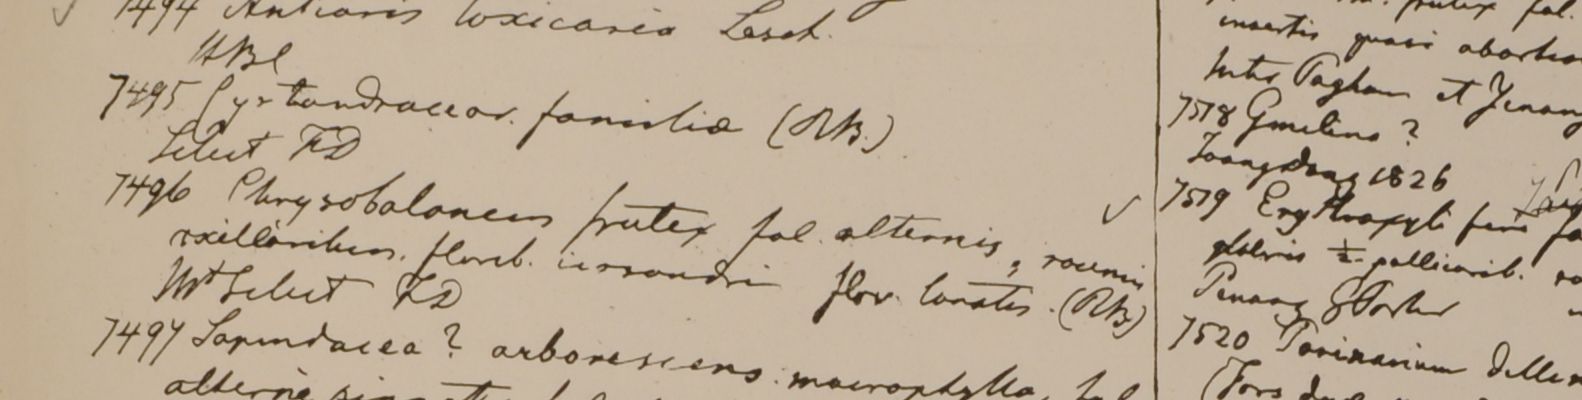 7494 Antiaris toxicaria Lesch.
HBC
7495 Cyrtandracear. familiæ (RB.)
Silhet FD
7496 Chrysobalaneus frutex fol. alternis, racemis
axillaribus, floreb. icosandri flor. lanatis. (RB)
Mt Silhet FD
7497 Sapindacea? arborescens. macrophylla, fol
alternis
frutex fol.
insertis quasi
Inter Paghan et Yenang
7518 Gmelina?
Toongdong 1826
7519 Erythroxyli
glabris ½ pollicarib.
Penang GPorter
7520 Parinarium